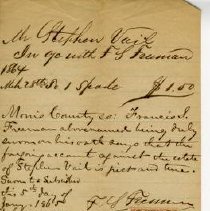 Mr Stephen Vail
In a/c with F S Freeman
1864
Mch 28th To 1 Spade $1.50
Morris County ss: Francis S.
Freeman above named being duly
sworn on his oath says that the
foregoing account against the estate
of Stephen Vail is just and true.
Sworn & Subscribed
this 5th Jany
1865
F S Freeman